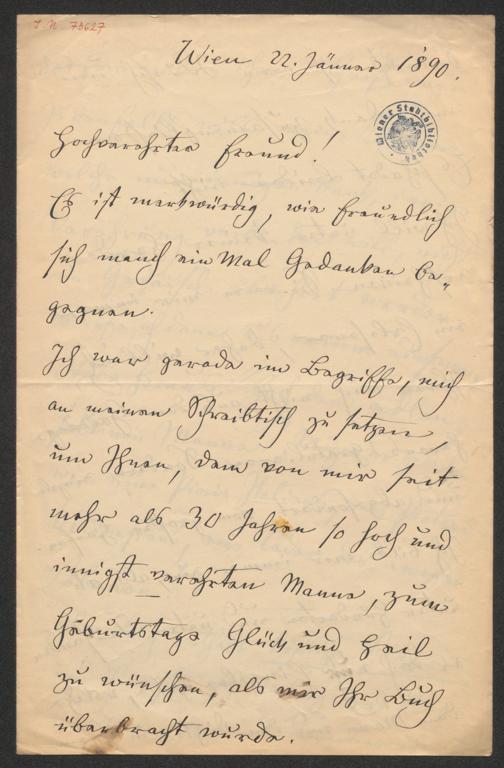 J. N. 73627
Wien 22. Jänner 1890.
Wiener Stadtbibliothek
Hochverehrter Freund!
Es ist merkwürdig, wie freundlich
sich manch ein Mal Gedanken be-
gegnen.
Ich war gerade im Begriffe, mich
an meinen Schreibtisch zu setzen,
um Ihnen, dem von mir seit
mehr als 30 Jahren so hoch und
innigst verehrten Manne, zum
Geburtstage Glück und Heil
zu wünschen, als mir Ihr Buch
überbracht wurde.